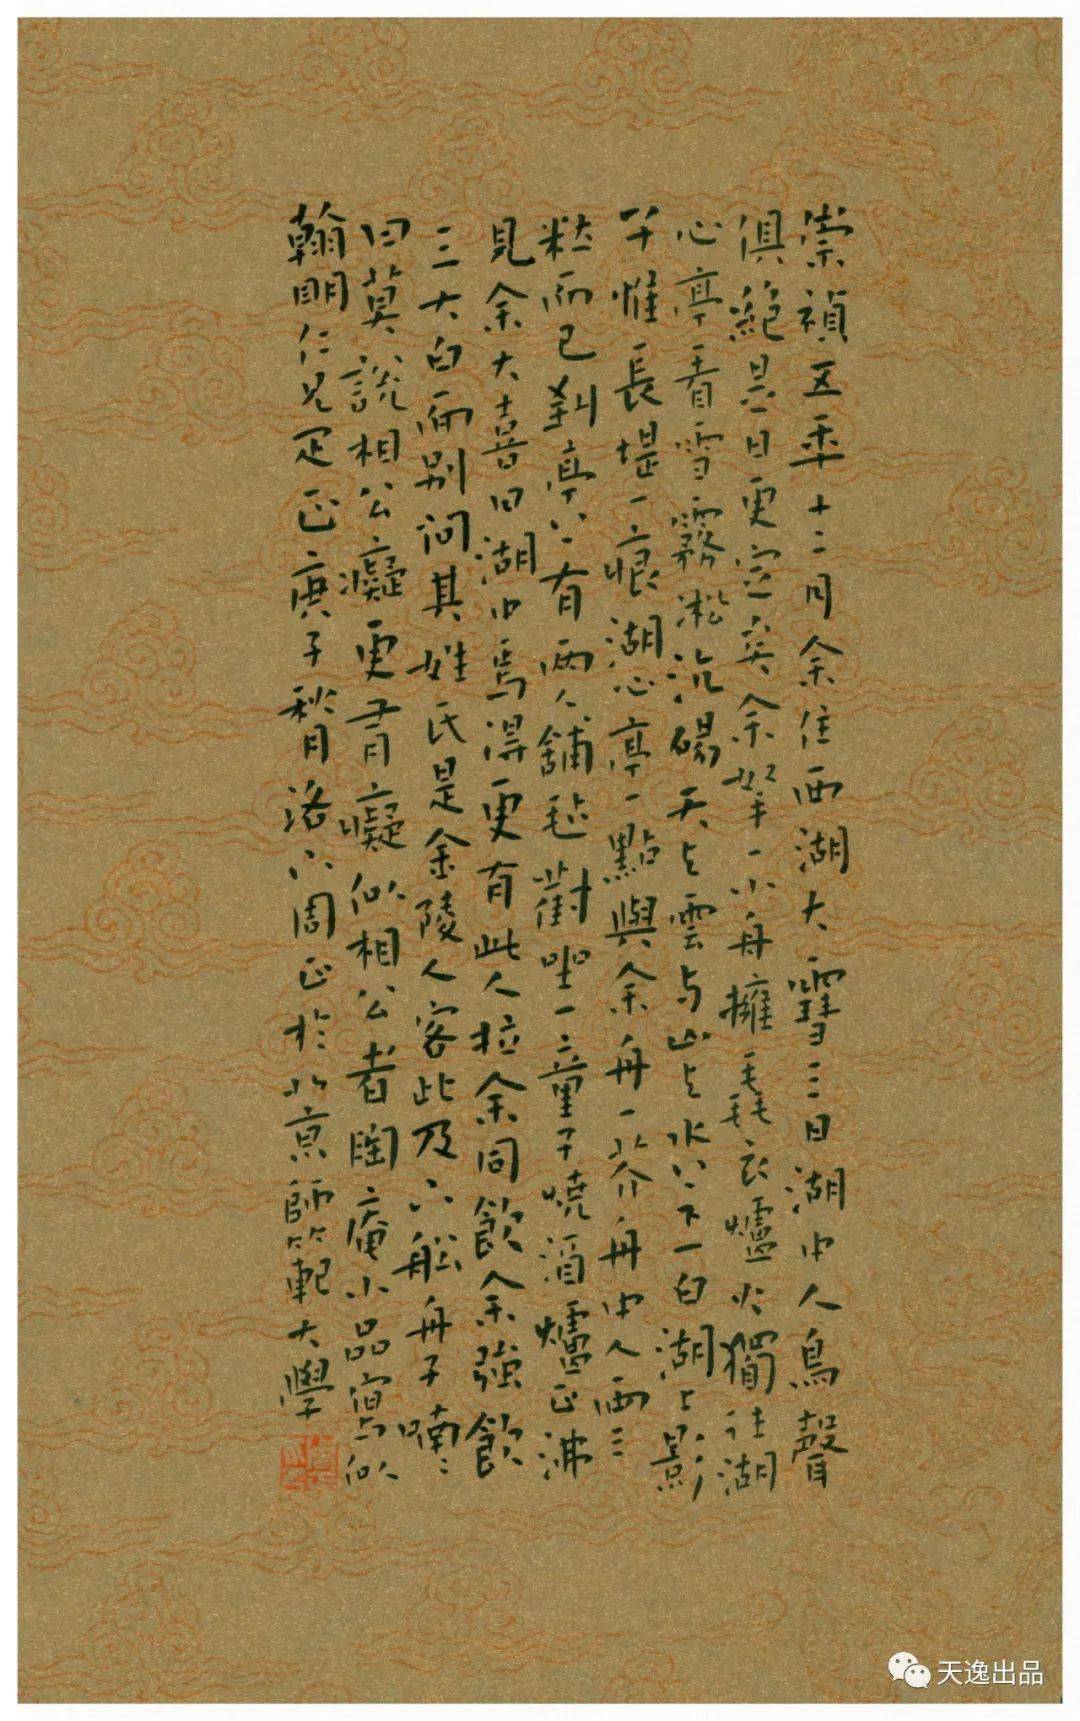 崇禎五年十二月余住西湖大雪三日湖中人鳥聲
俱絕是日更定矣余拏一小舟擁毳衣爐火獨往湖
心亭看雪霧凇沆碭天與雲與山與水上下一白湖上影
子惟長堤一痕湖心亭一點與余舟一芥舟中人兩三
粒而已到亭上有兩人鋪氈對坐一童子燒酒爐正沸
見余大喜曰湖中焉得更有此人拉余同飲余強飲
三大白而別問其姓氏是金陵人客此及下船舟子喃喃
曰莫說相公癡更有癡似相公者陶庵小品寫似
翰明仁兄疋正庚子秋月洛下周正於北京師範大學
天逸出品